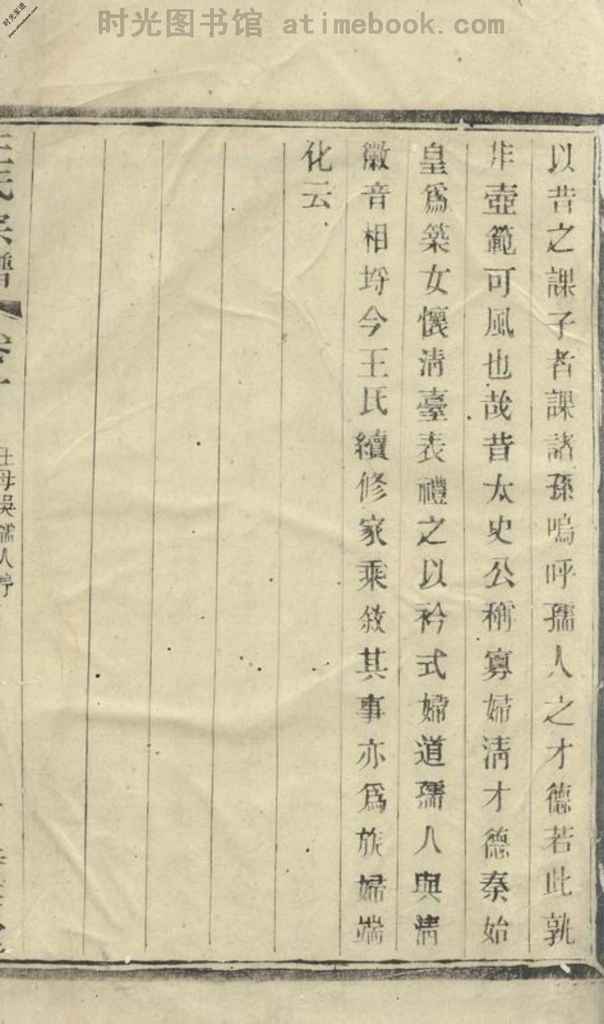 时光图书馆 atimebook.com
以昔之課子者課諸孫嗚呼孺人之才德若此孰
非壼範可風也哉昔太史公稱寡婦清才德秦始
皇爲築女懷清臺表禮之以衿式婦道孺人與清
徽音相埒今王氏續修家乘敘其事亦爲族婦端
化云
王氏宗譜 卷一
母吳孺人序